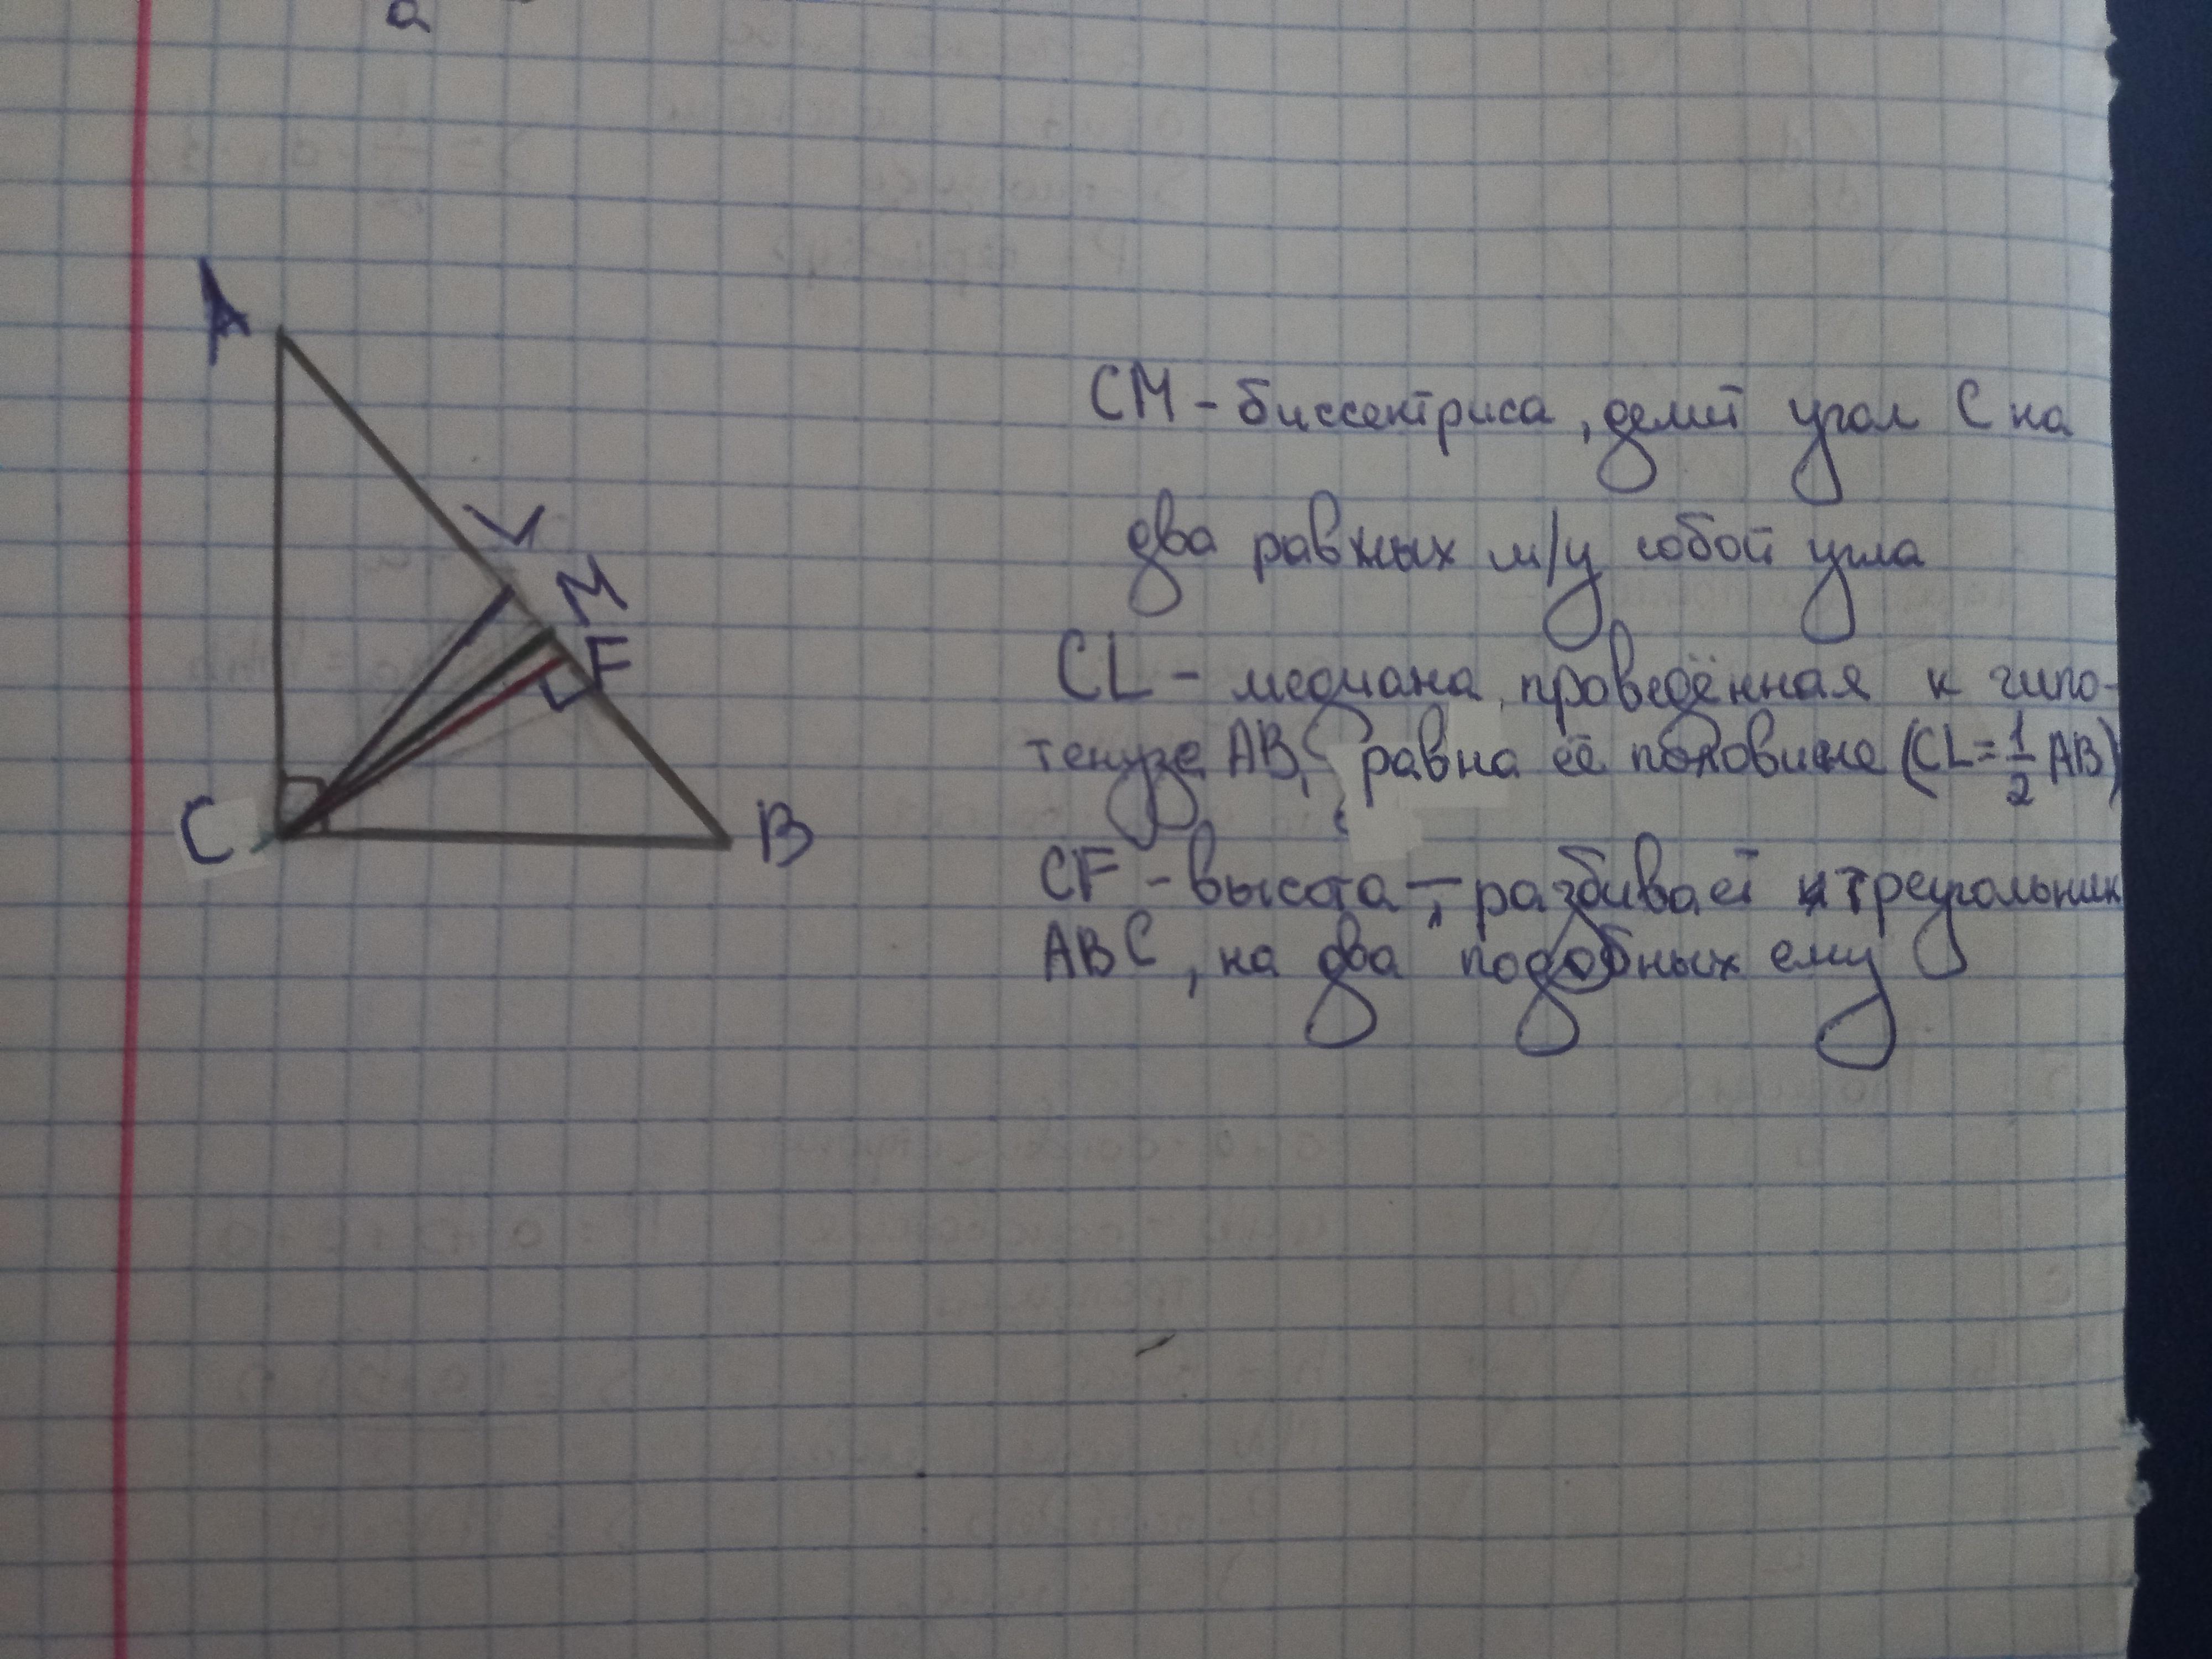 a
A
L
M
F
C
B
CM - биссектриса, делит угол C на
два равных м/у собой угла
CL - медиана, проведённая к гипо-
тенузе AB, равна её половине (CL = 1/2 AB)
CF - высота -, разбивает треугольник
ABC, на два подобных ему